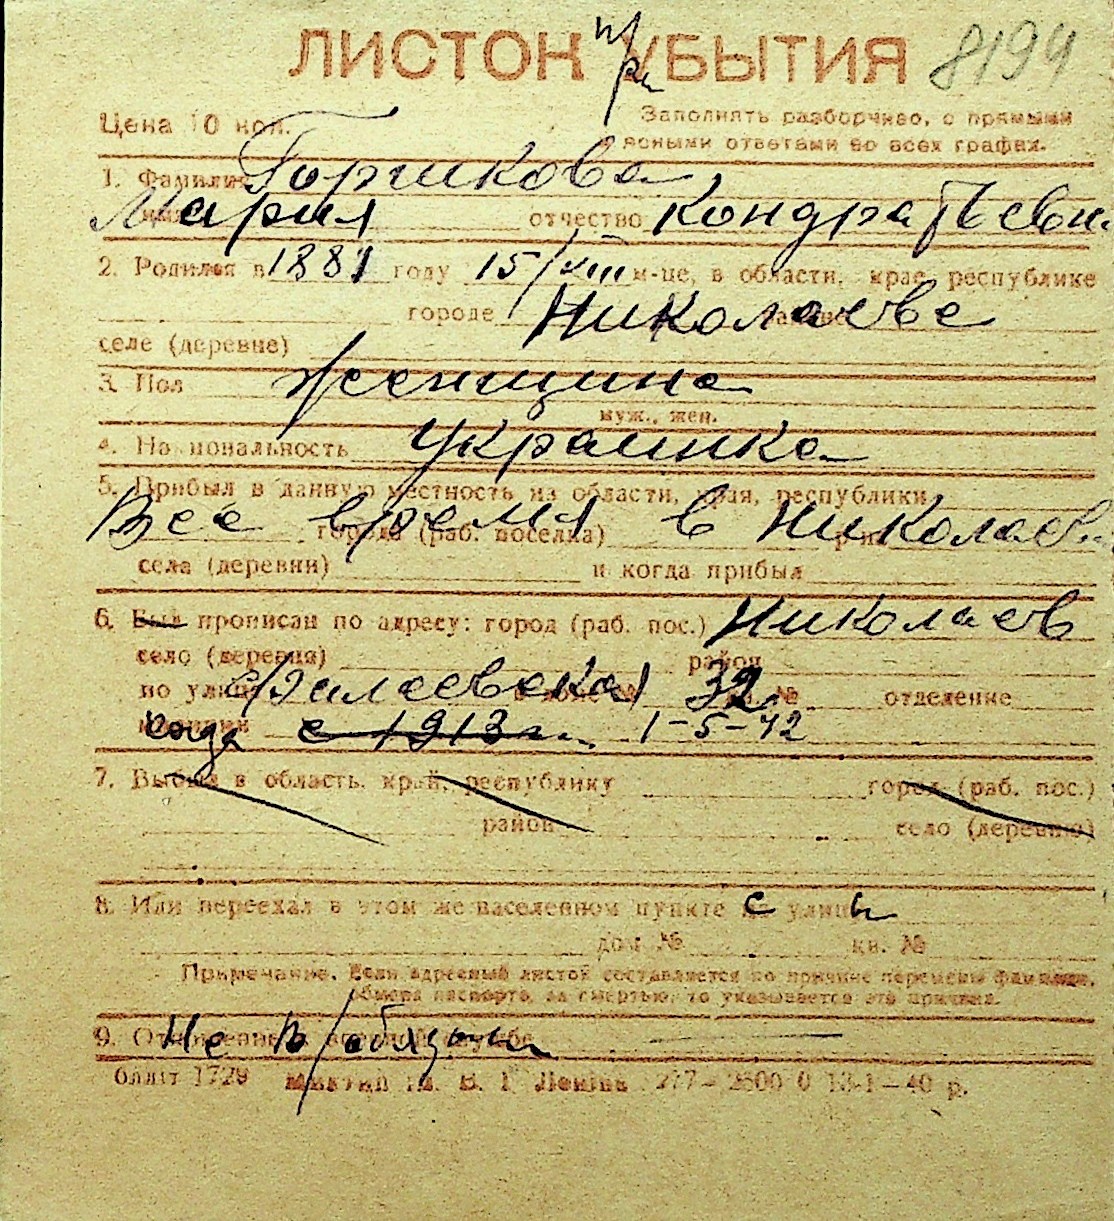 ЛИСТОК УБЫТИЯ 8199
Цена 10 коп. Заполнять разборчиво, с прямыми
и ясными ответами во всех графах.
1. Фамилия Горшкова
имя Мария отчество Кондратьевн.
2. Родился в 1881 году 15/VIII м-це, в области, крае, республике
городе Николаеве
селе (деревне)
3. Пол Женщина
муж., жен.
4. Национальность Украинка
5. Прибыл в данную местность из области, края, республики
Все время в Николаеве
города (раб. поселка)
села (деревни) и когда прибыл
6. Был прописан по адресу: город (раб. пос.) Николаев
село (деревня) район
по улице Фалеевская 32 кв. № отделение
милиции когда с 1913 г. 1-5-42
7. Выбыл в область, край, республику город (раб. пос.)
район село (деревню)
8. Или переехал в этом же населенном пункте с улицы
дом № кв. №
Примечание. Если адресный листок составляется по причине перемены фамилии,
обмена паспорта, за смертью, то указывается эта причина.
9. Отношение к военной службе Не в/обязан
бланк 1729 В. І. Леніна 277—2500 0 13-1—40 р.